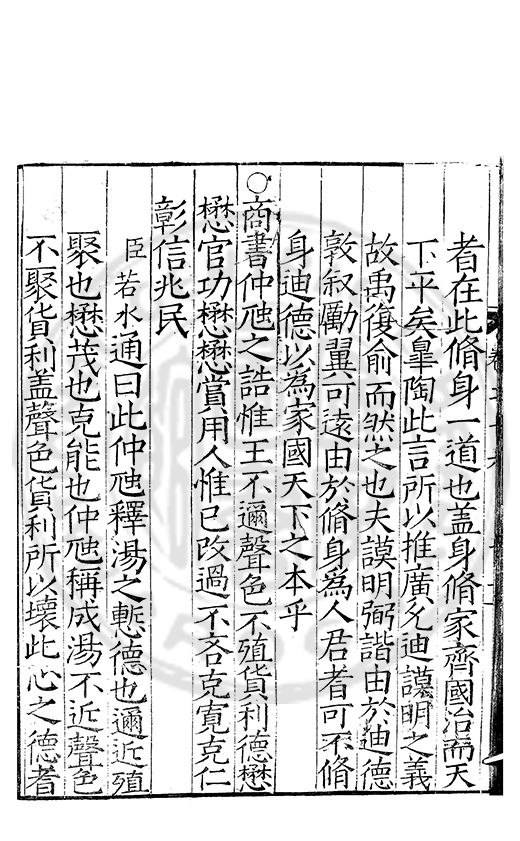 者在此脩身一道也盖身脩家齊國治而天
下平矣臯陶此言所以推廣允迪謨明之義
故禹復俞而然之也夫謨明弼諧由於迪德
敦叙勵翼可遠由於脩身為人君者可不脩
身迪德以為家國天下之本乎
○商書仲虺之誥惟王不邇聲色不殖貨利德懋
懋官功懋懋賞用人惟已改過不吝克寛克仁
彰信兆民
臣若水通曰此仲虺釋湯之慙德也邇近殖
聚也懋茂也克能也仲虺稱成湯不近聲色
不聚貨利盖聲色貨利所以壞此心之德者